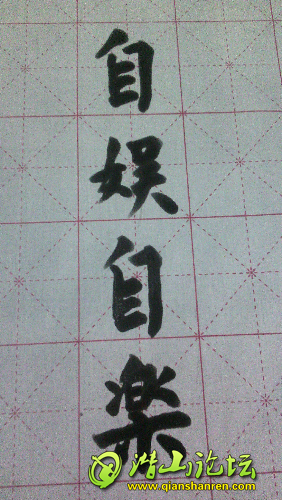 自娱自楽
潜山论坛
www.qianshanren.com